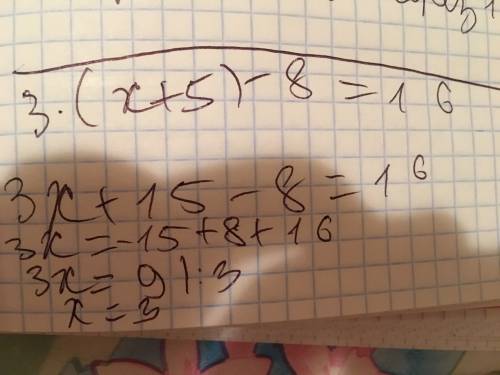 3·(x+5)-8=16
3x+15-8=16
3x=-15+8+16
3x=9 |:3
x=3